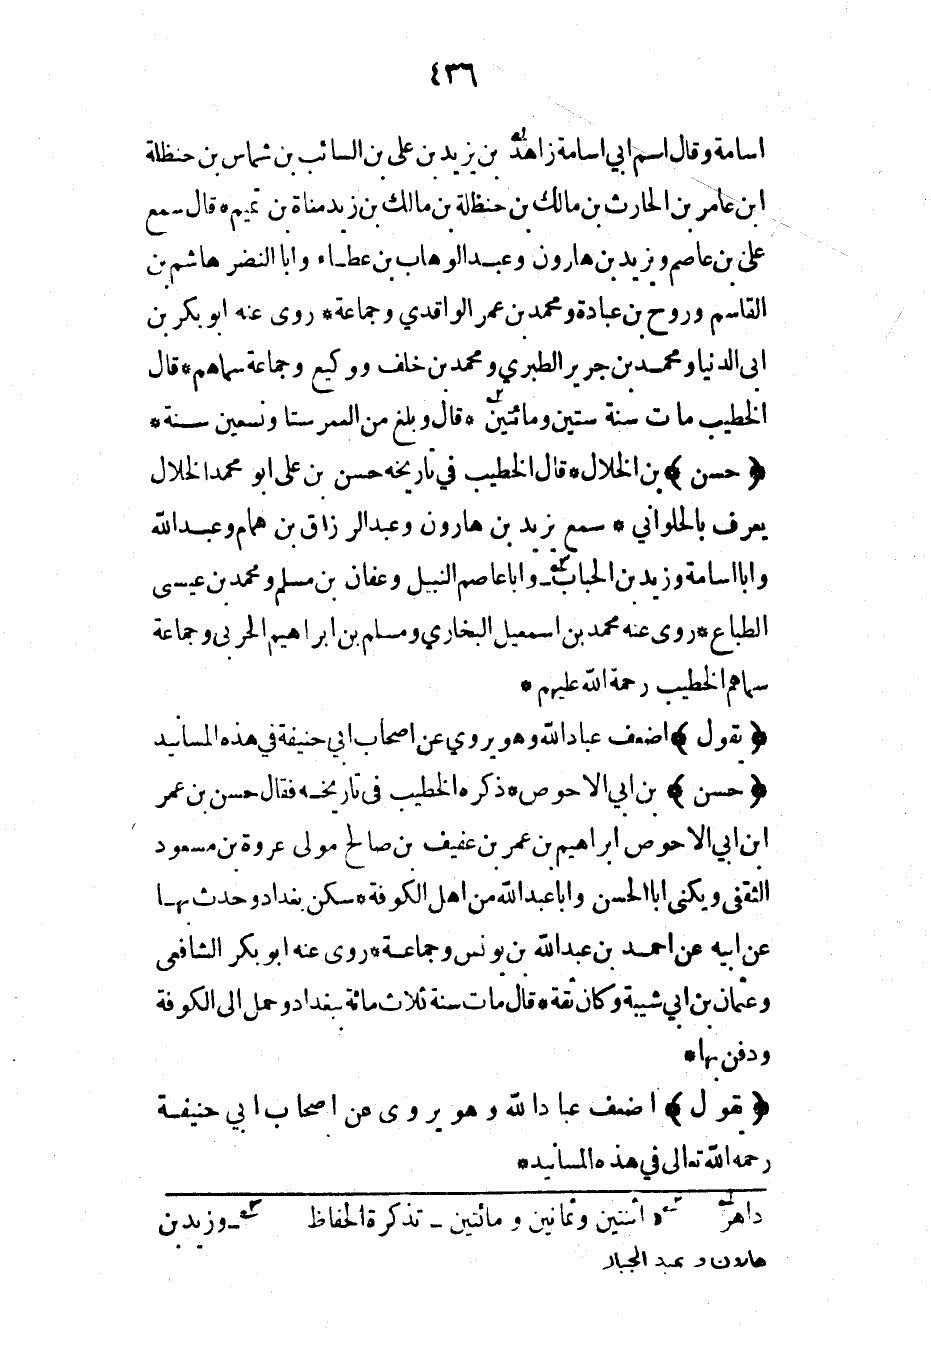 ٤٣٦
اسامة وقال اسم ابي اسامة زاهد بن يزيد بن على بن السائب بن شماس بن حنظلة
ابن عامر بن الحارث بن مالك بن حنظلة بن مالك بن زيد مناة بن تميم * قال سمع
على بن عاصم و يزيد بن هارون وعبد الوهاب بن عطاء وابا النضر هاشم بن
القاسم وروح بن عبادة ومحمد بن عمر الواقدي وجماعة * روى عنه ابو بكر بن
ابى الدنيا ومحمد بن جرير الطبري ومحمد بن خلف ووكيع وجماعة سماهم * قال
الخطيب مات سنة ستين ومائتين * قال وبلغ من العمر ستا وتسعين سنة *
﴿ حسن ﴾ بن الخلال * قال الخطيب في تاريخه حسن بن على ابو محمد الخلال
يعرف بالحلواني * سمع يزيد بن هارون وعبد الرزاق بن همام وعبد الله
وابا اسامة وزيد بن الحباب وابا عاصم النبيل وعفان بن مسلم ومحمد بن عيسى
الطباع * روى عنه محمد بن اسمعيل البخاري ومسلم بن ابراهيم الحربى وجماعة
سماهم الخطيب رحمة الله عليهم *
﴿ يقول ﴾ اضعف عباد الله وهو يروي عن اصحاب ابي حنيفة في هذه المسانيد
﴿ حسن ﴾ بن ابي الاحوص * ذكره الخطيب فى تاريخه فقال حسن بن عمر
ابن ابي الاحوص ابراهيم بن عمر بن عفيف بن صالح مولى عروة بن مسعود
الثقفى ويكنى ابا الحسن وابا عبد الله من اهل الكوفة * سكن بغداد وحدث بها
عن ابيه عن احمد بن عبد الله بن يونس وجماعة * روى عنه ابو بكر الشافعى
وعثمان بن ابي شيبة وكان ثقة * قال مات سنة ثلاث مائة ببغداد وحمل الى الكوفة
ودفن بها *
﴿ يقول ﴾ اضعف عباد الله وهو يروى عن اصحاب ابي حنيفة
رحمه الله تعالى في هذه المسانيد *
داهر اثنتين وثمانين و مائتين - تذكرة الحفاظ - وزيد بن
هارون و عبد الجبار